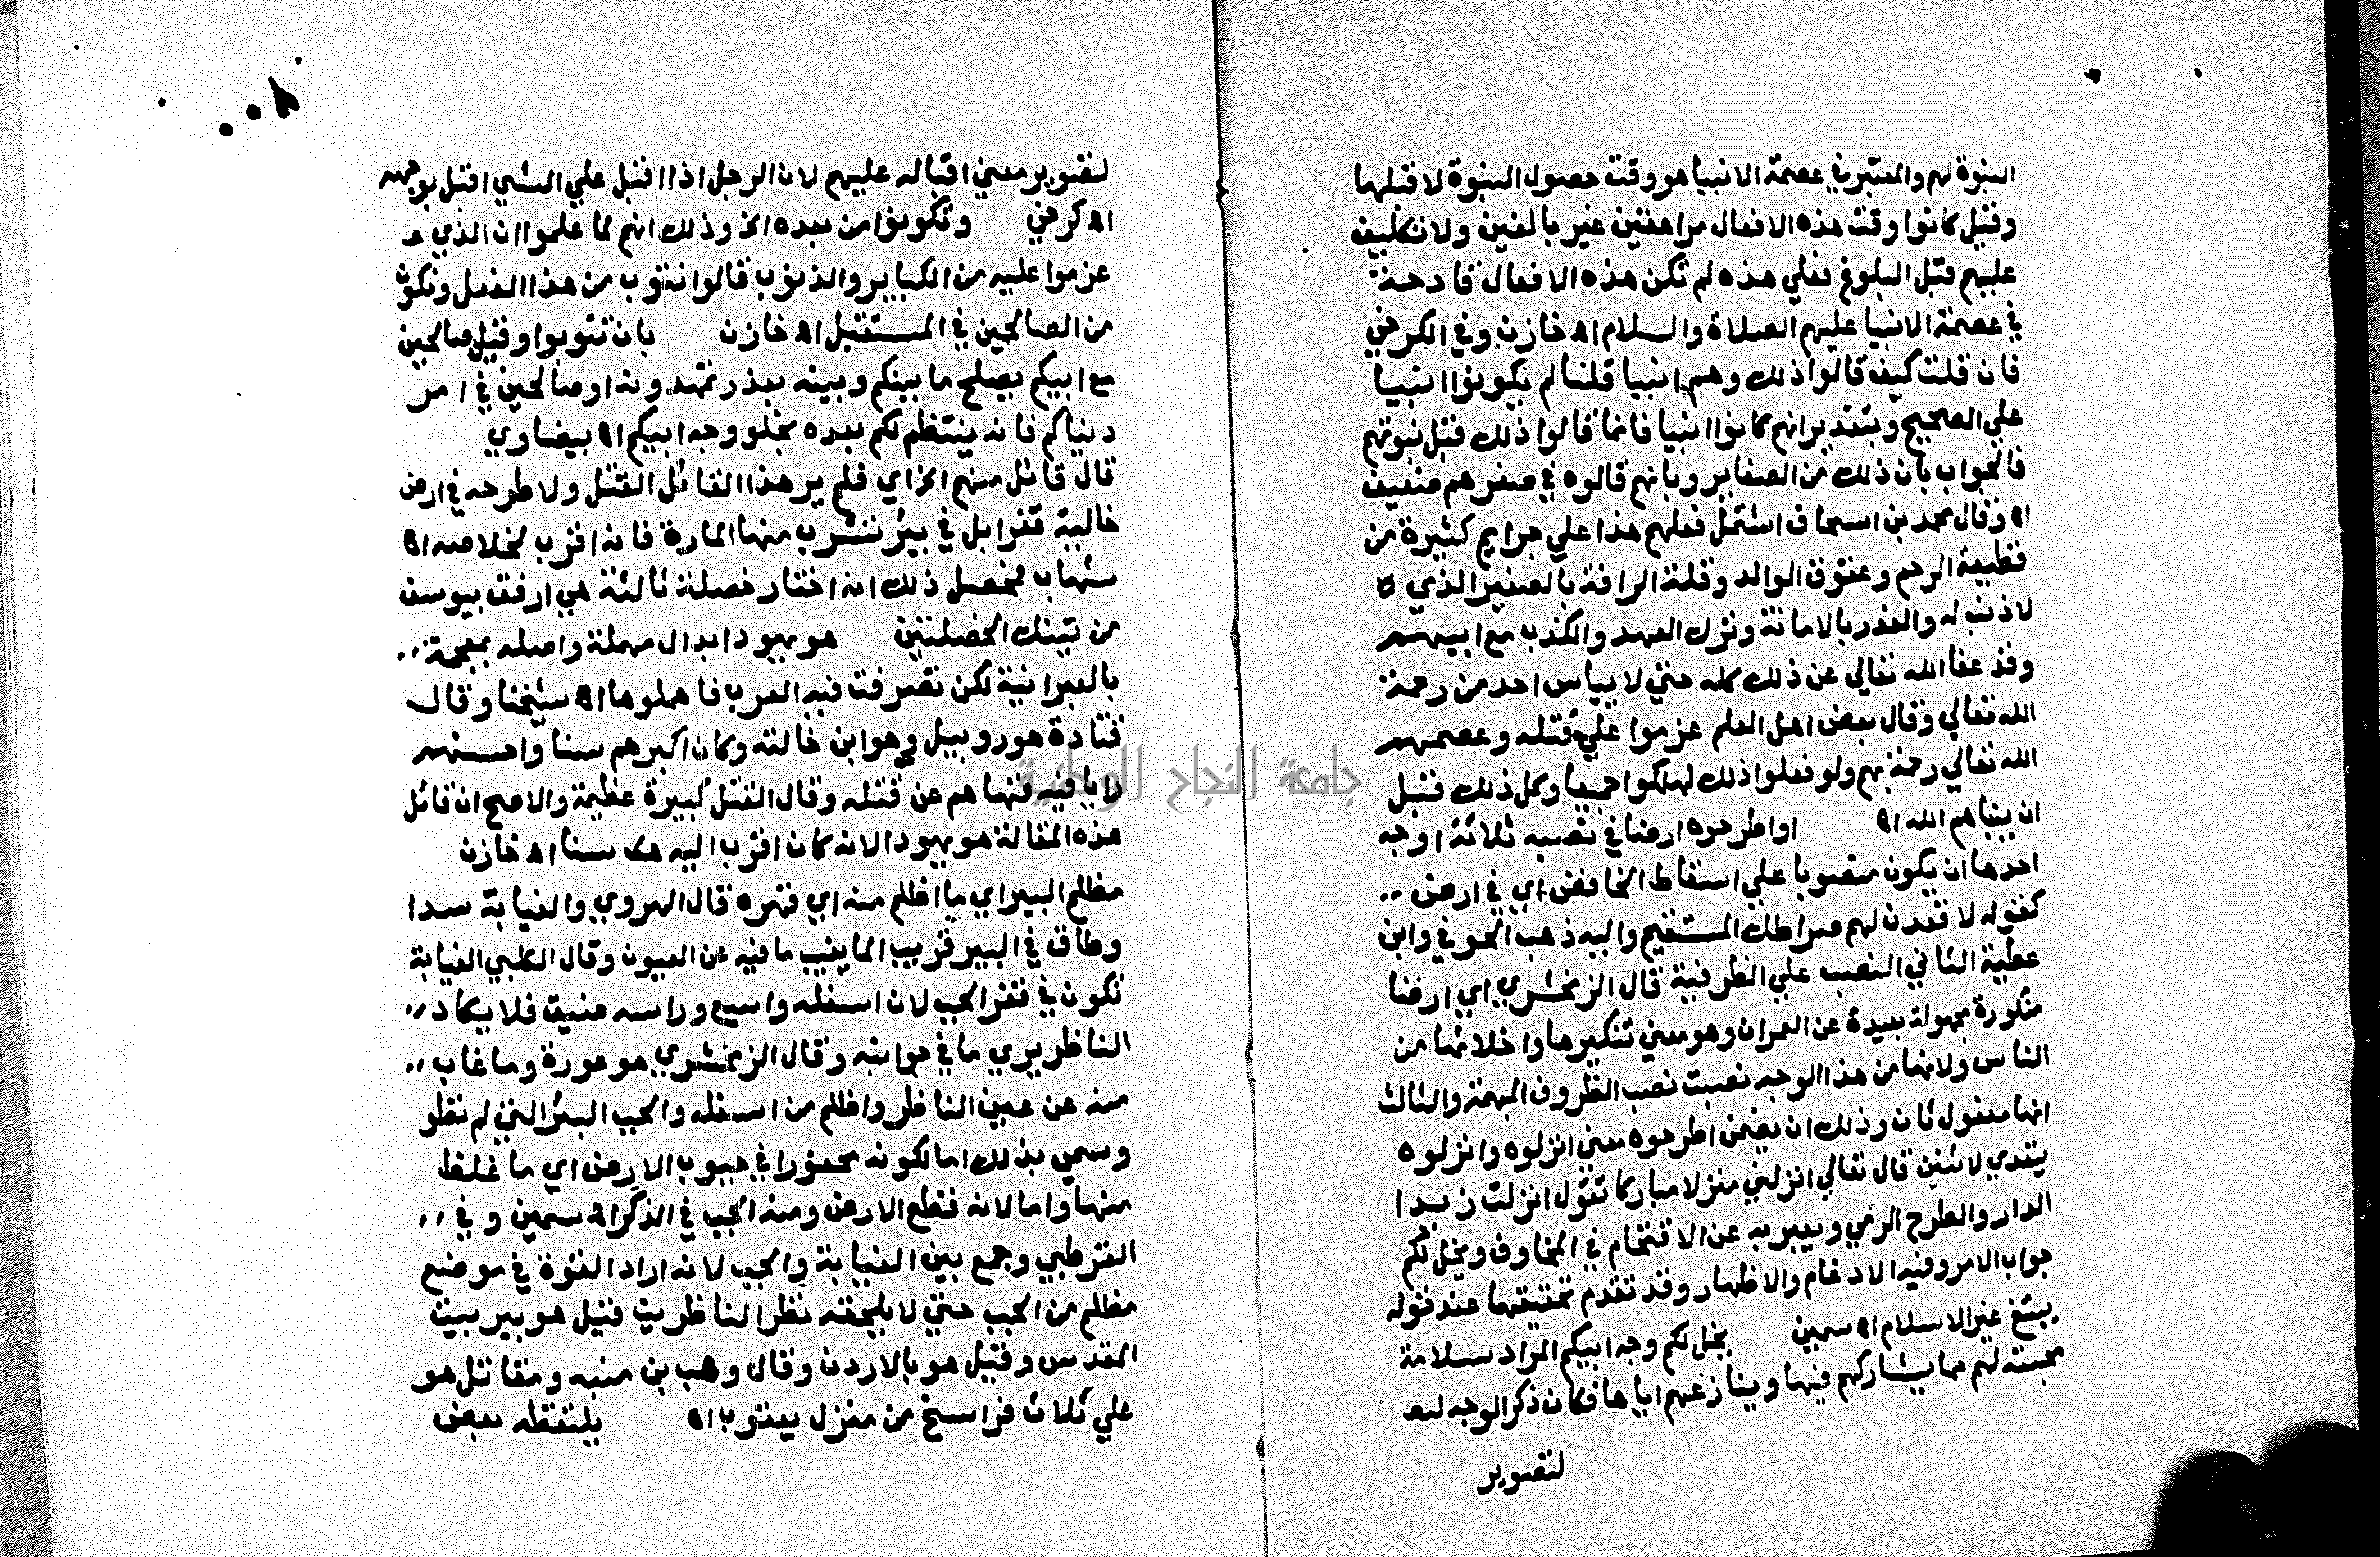 النبوة لهم والمعتبر في عصمة الانبيا هو وقت حصول النبوة لا قبلها
وقيل كانوا وقت هذه الافعال مراهقين غير بالغين ولا تكليف
عليهم قبل البلوغ فعلي هذه لم تكن هذه الافعال قادحة
في عصمة الانبيا عليهم الصلاة والسلام اه خازن وفي الكرخي
فان قلت كيف قالوا ذلك وهم انبيا قلنا لم يكونوا انبيا
علي الصحيح وبتقدير انهم كانوا انبيا فانما قالوا ذلك قبل نبوتهم
فالجواب بان ذلك من الصغاير وبانهم قالوه في صغرهم ضعيف
اه وقال محمد بن اسحاق اشتمل فعلهم هذا علي جرايم كثيرة من
قطيعة الرحم وعقوق الوالد وقلة الرافة بالصغير الذي
لا ذنب له والغدر بالامانة وترك العهد والكذب مع ابيهم
وقد عفا الله تعالي عن ذلك كله حتي لا يياس احد من رحمة
الله تعالي وقال بعض اهل العلم عزموا علي قتله وعصمهم
الله تعالي رحمة بهم ولو فعلوا ذلك لهلكوا جميعا وكل ذلك قبل
ان ينباهم الله اه او اطرحوه ارضا في نصبه ثلاثة اوجه
احدها ان يكون منصوبا علي اسقاط الخافض اي في ارض
كقوله لا قعدن لهم صراطك المستقيم واليه ذهب الحوفي وابن
عطية الثاني النصب علي الظرفية قال الزمخشري اي ارضا
منكورة مجهولة بعيدة عن العمران وهو معني تنكيرها واخلائها من
الناس ولانها من هذا الوجه نصبت نصب الظروف المبهمة والثالث
انها مفعول ثان وذلك ان يضمن اطرحوه معني انزلوه وانزلوه
يتعدي لاثنين قال تعالي انزلني منزلا مباركا تقول انزلت زيدا
الدار والطرح الرمي ويعبر به عن الاقتحام في المخاوف ويخل لكم
جواب الامر وفيه الادغام والاظهار وقد تقدم تحقيقهما عند قوله
يبتغ غير الاسلام اه سمين يخل لكم وجه ابيكم المراد سلامة
محبته لهم مما يشاركهم فيها وينازعهم اياها فكان ذكر الوجه
لتصوير
لتصوير معني اقباله عليهم لان الرجل اذا اقبل علي الشي اقبل بوجهه
اه كرخي وتكونوا من بعده الخ وذلك انهم لما علموا ان الذي
عزموا عليه من الكباير والذنوب قالوا نتوب من هذا الفعل ونكون
من الصالحين في المستقبل اه خازن بان تتوبوا وقيل صالحين
مع ابيكم بصلح ما بينكم وبينه بعذر تمهدونه او صالحين في امر
دنياكم فانه ينتظم لكم بعده بخلو وجه ابيكم اه بيضاوي
قال قائل منهم الخ اي فلم ير هذا القائل القتل ولا طرحه في ارض
خالية قفرا بل في بير تشرب منها المارة فانه اقرب لخلاصه اه
شهاب فحصل ذلك انه اختار خصلة ثالثة هي ارفق بيوسف
من تينك الخصلتين هو يهودا بدال مهملة واصله بمعجمة
بالعبرانية لكن تصرفت فيه العرب فاهملوها اه شيخنا وقال
قتادة هو روبيل وهو ابن خالته وكان اكبرهم سنا واحسنهم
رايا فيه فنهاهم عن قتله وقال القتل كبيرة عظيمة والاصح ان قائل
هذه المقالة هو يهودا لانه كان اقربا اليه سنا اه خازن
مظلم البير اي ما اظلم منه اي قهره قال الهروي والغيابة سدا
وطاق في البير قريب الما يغيب ما فيه عن العيون وقال الكلبي الغيابة
تكون في قعر الجب لان اسفله واسع وراسه ضيق فلا يكاد
الناظر يري ما في جوانبه وقال الزمخشري هو عورة وما غاب
منه عن عين الناظر واظلم من اسفله والجب البئر التي لم تطو
وسمي بذلك اما لكونه محفورا في جيوب الارض اي ما غلظ
منها واما لانه قطع الارض ومنه الجب في الذكر اه سمين وفي
القرطبي وجمع بين الغيابة والجب لانه اراد القوة في موضع
مظلم من الجب حتي لا يلحقه نظر الناظرين قيل هو بير بيت
المقدس وقيل هو بالاردن وقال وهب بن منبه ومقاتل هو
علي ثلاث فراسخ من منزل يعقوب اه يلتقطه بعض